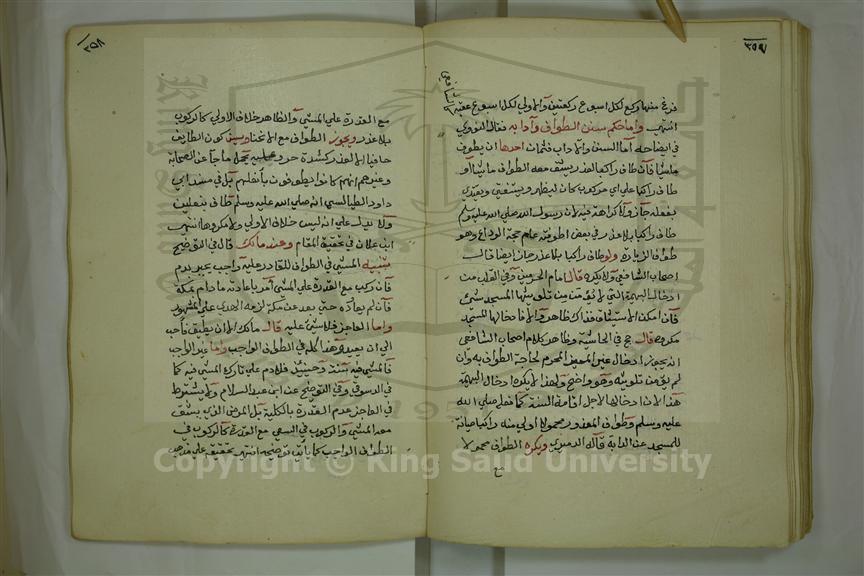 ٣٥٧
الشافعي
فرغ منها ركع لكل اسبوع ركعتين والاولى لكل اسبوع عقبه
انتهى واما حكم سنن الطواف وآدابه فقال النووي
في ايضاحه اما السنن والاداب فثمان احدها ان يطوف
ماشيا فان طاف راكبا لعذر يشق معه الطواف ماشيا او
طاف راكبا على اي مركوب كان ليظهر ويستفتى ويقتدى
بفعله جاز ولا كراهة فيه لان رسول الله صلى الله عليه وسلم
طاف راكبا بلا عذر في بعض اطوفته عام حجة الوداع وهو
طواف الزيارة ولو طاف راكبا بلا عذر جاز ايضا قال
اصحاب الشافعي ولا يكره قال امام الحرمين وفي القلب من
ادخال البهيمة التي لا يؤمن من تلويثها المسجد شيء
فان امكن الاستيثاق فذاك ظاهر والا فادخالها المسجد
مكروه قال حج في الحاشية وظاهر كلام اصحاب الشافعي
انه يجوز ادخال غير المميز المحرم لحاجة الطواف به وان
لم يؤمن تلويثه وهو واضح ولهذا لا يكره ادخال البهيمة
هذا لان ادخالها لاجل اقامة السنة كما فعله صلى الله
عليه وسلم وطواف المعذور محمولا اولى منه راكبا صيانة
للمسجد عن الدابة قاله الدميري ويكره الطواف محمولا
مع
٣٥٨
مع القدرة على المشي والظاهر خلاف الاولى كالركوب
بلا عذر ويجوز الطواف مع الانتعال ويسن كون الطايف
حافيا الا لعذر كشدة حر وعليه يحمل ما جاء عن الصحابة
وغيرهم انهم كانوا يطوفون بانعلهم بل في مسند ابي
داود الطيالسي انه صلى الله عليه وسلم طاف بنعلين
ولا يدل على انه ليس خلاف الاولى ولا مكروها انتهى
ابن علان في تحقيق المقام وعند مالك قال في التوضيح
تنبيه المشي في الطواف للقادر عليه واجب يجبر بدم
فان ركب مع القدرة على المشي أمر باعادته ما دام بمكة
فان لم يعاده حتى بعد عن مكة لزمه الهدي على المشهور
واما العاجز فلا شيء عليه قال مالك الا ان يطيق فأحب
الي ان يعيد وهذا كله في الطواف الواجب واما غير الواجب
فالمشي فيه سنة وحينئذ فلا دم على تارك المشي فيه كما
في الدسوقي وفي التوضيح عن ابن عبد السلام ولا يشترط
في العاجز عدم القدرة بالكلية بل المرض الذي يشق
معه المشي والركوب في السعي مع القدرة كالركوب في
الطواف الواجب كما يأتي توضيحه انتهى تحقيق على مذهب
Copyright © King Saud University